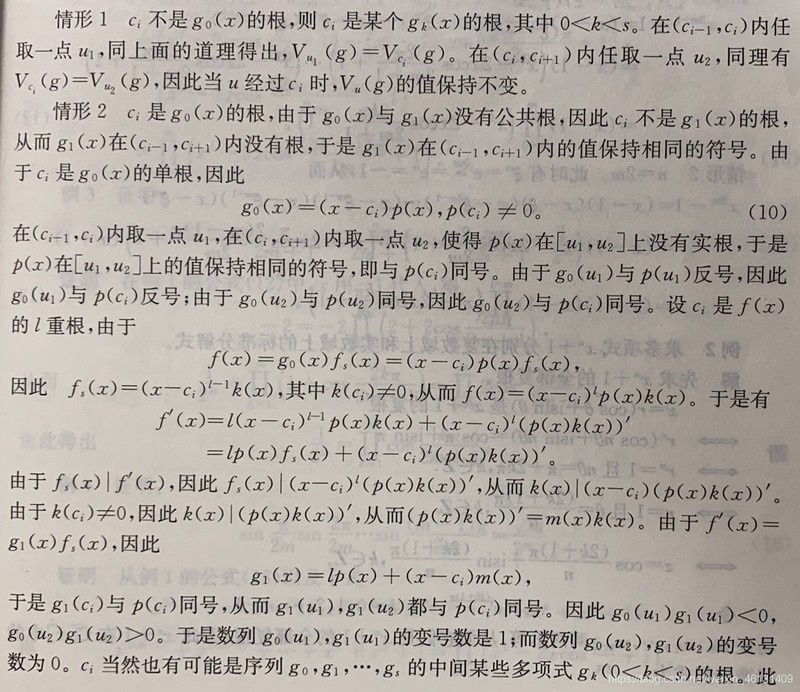 情形1 c_i 不是g_0(x)的根,则 c_i 是某个g_k(x)的根,其中0<k<s。在(c_{i-1},c_i)内任
取一点u_1,同上面的道理得出,V_{u_1}(g)=V_{c_i}(g)。在(c_i,c_{i+1})内任取一点u_2,同理有
V_{c_i}(g)=V_{u_2}(g),因此当u经过c_i时,V_u(g)的值保持不变。
情形2 c_i是g_0(x)的根,由于g_0(x)与g_1(x)没有公共根,因此c_i不是g_1(x)的根,
从而g_1(x)在(c_{i-1},c_{i+1})内没有根,于是g_1(x)在(c_{i-1},c_{i+1})内的值保持相同的符号。由
于c_i是g_0(x)的单根,因此
g_0(x)=(x-c_i)p(x),p(c_i)≠0。 (10)
在(c_{i-1},c_i)内取一点u_1,在(c_i,c_{i+1})内取一点u_2,使得p(x)在[u_1,u_2]上没有实根,于是
p(x)在[u_1,u_2]上的值保持相同的符号,即与p(c_i)同号。由于g_0(u_1)与p(u_1)反号,因此
g_0(u_1)与p(c_i)反号;由于g_0(u_2)与p(u_2)同号,因此g_0(u_2)与p(c_i)同号。设c_i是f(x)
的l重根,由于
f(x)=g_0(x)f_s(x)=(x-c_i)p(x)f_s(x),
因此 f_s(x)=(x-c_i)^{l-1}k(x),其中k(c_i)≠0,从而f(x)=(x-c_i)^l p(x)k(x)。于是有
f'(x)=l(x-c_i)^{l-1}p(x)k(x)+(x-c_i)^l(p(x)k(x))'
=lp(x)f_s(x)+(x-c_i)^l(p(x)k(x))'。
由于f_s(x)|f'(x),因此f_s(x)|(x-c_i)^l(p(x)k(x))',从而k(x)|(x-c_i)(p(x)k(x))'。
由于k(c_i)≠0,因此k(x)|(p(x)k(x))',从而(p(x)k(x))'=m(x)k(x)。由于f'(x)=
g_1(x)f_s(x),因此
g_1(x)=lp(x)+(x-c_i)m(x),
于是g_1(c_i)与p(c_i)同号,从而g_1(u_1),g_1(u_2)都与p(c_i)同号。因此g_0(u_1)g_1(u_1)<0,
g_0(u_2)g_1(u_2)>0。于是数列g_0(u_1),g_1(u_1)的变号数是1;而数列g_0(u_2),g_1(u_2)的变号
数为0。c_i当然也有可能是序列g_0,g_1,…,g_s的中间某些多项式g_k(0<k<s)的根。此